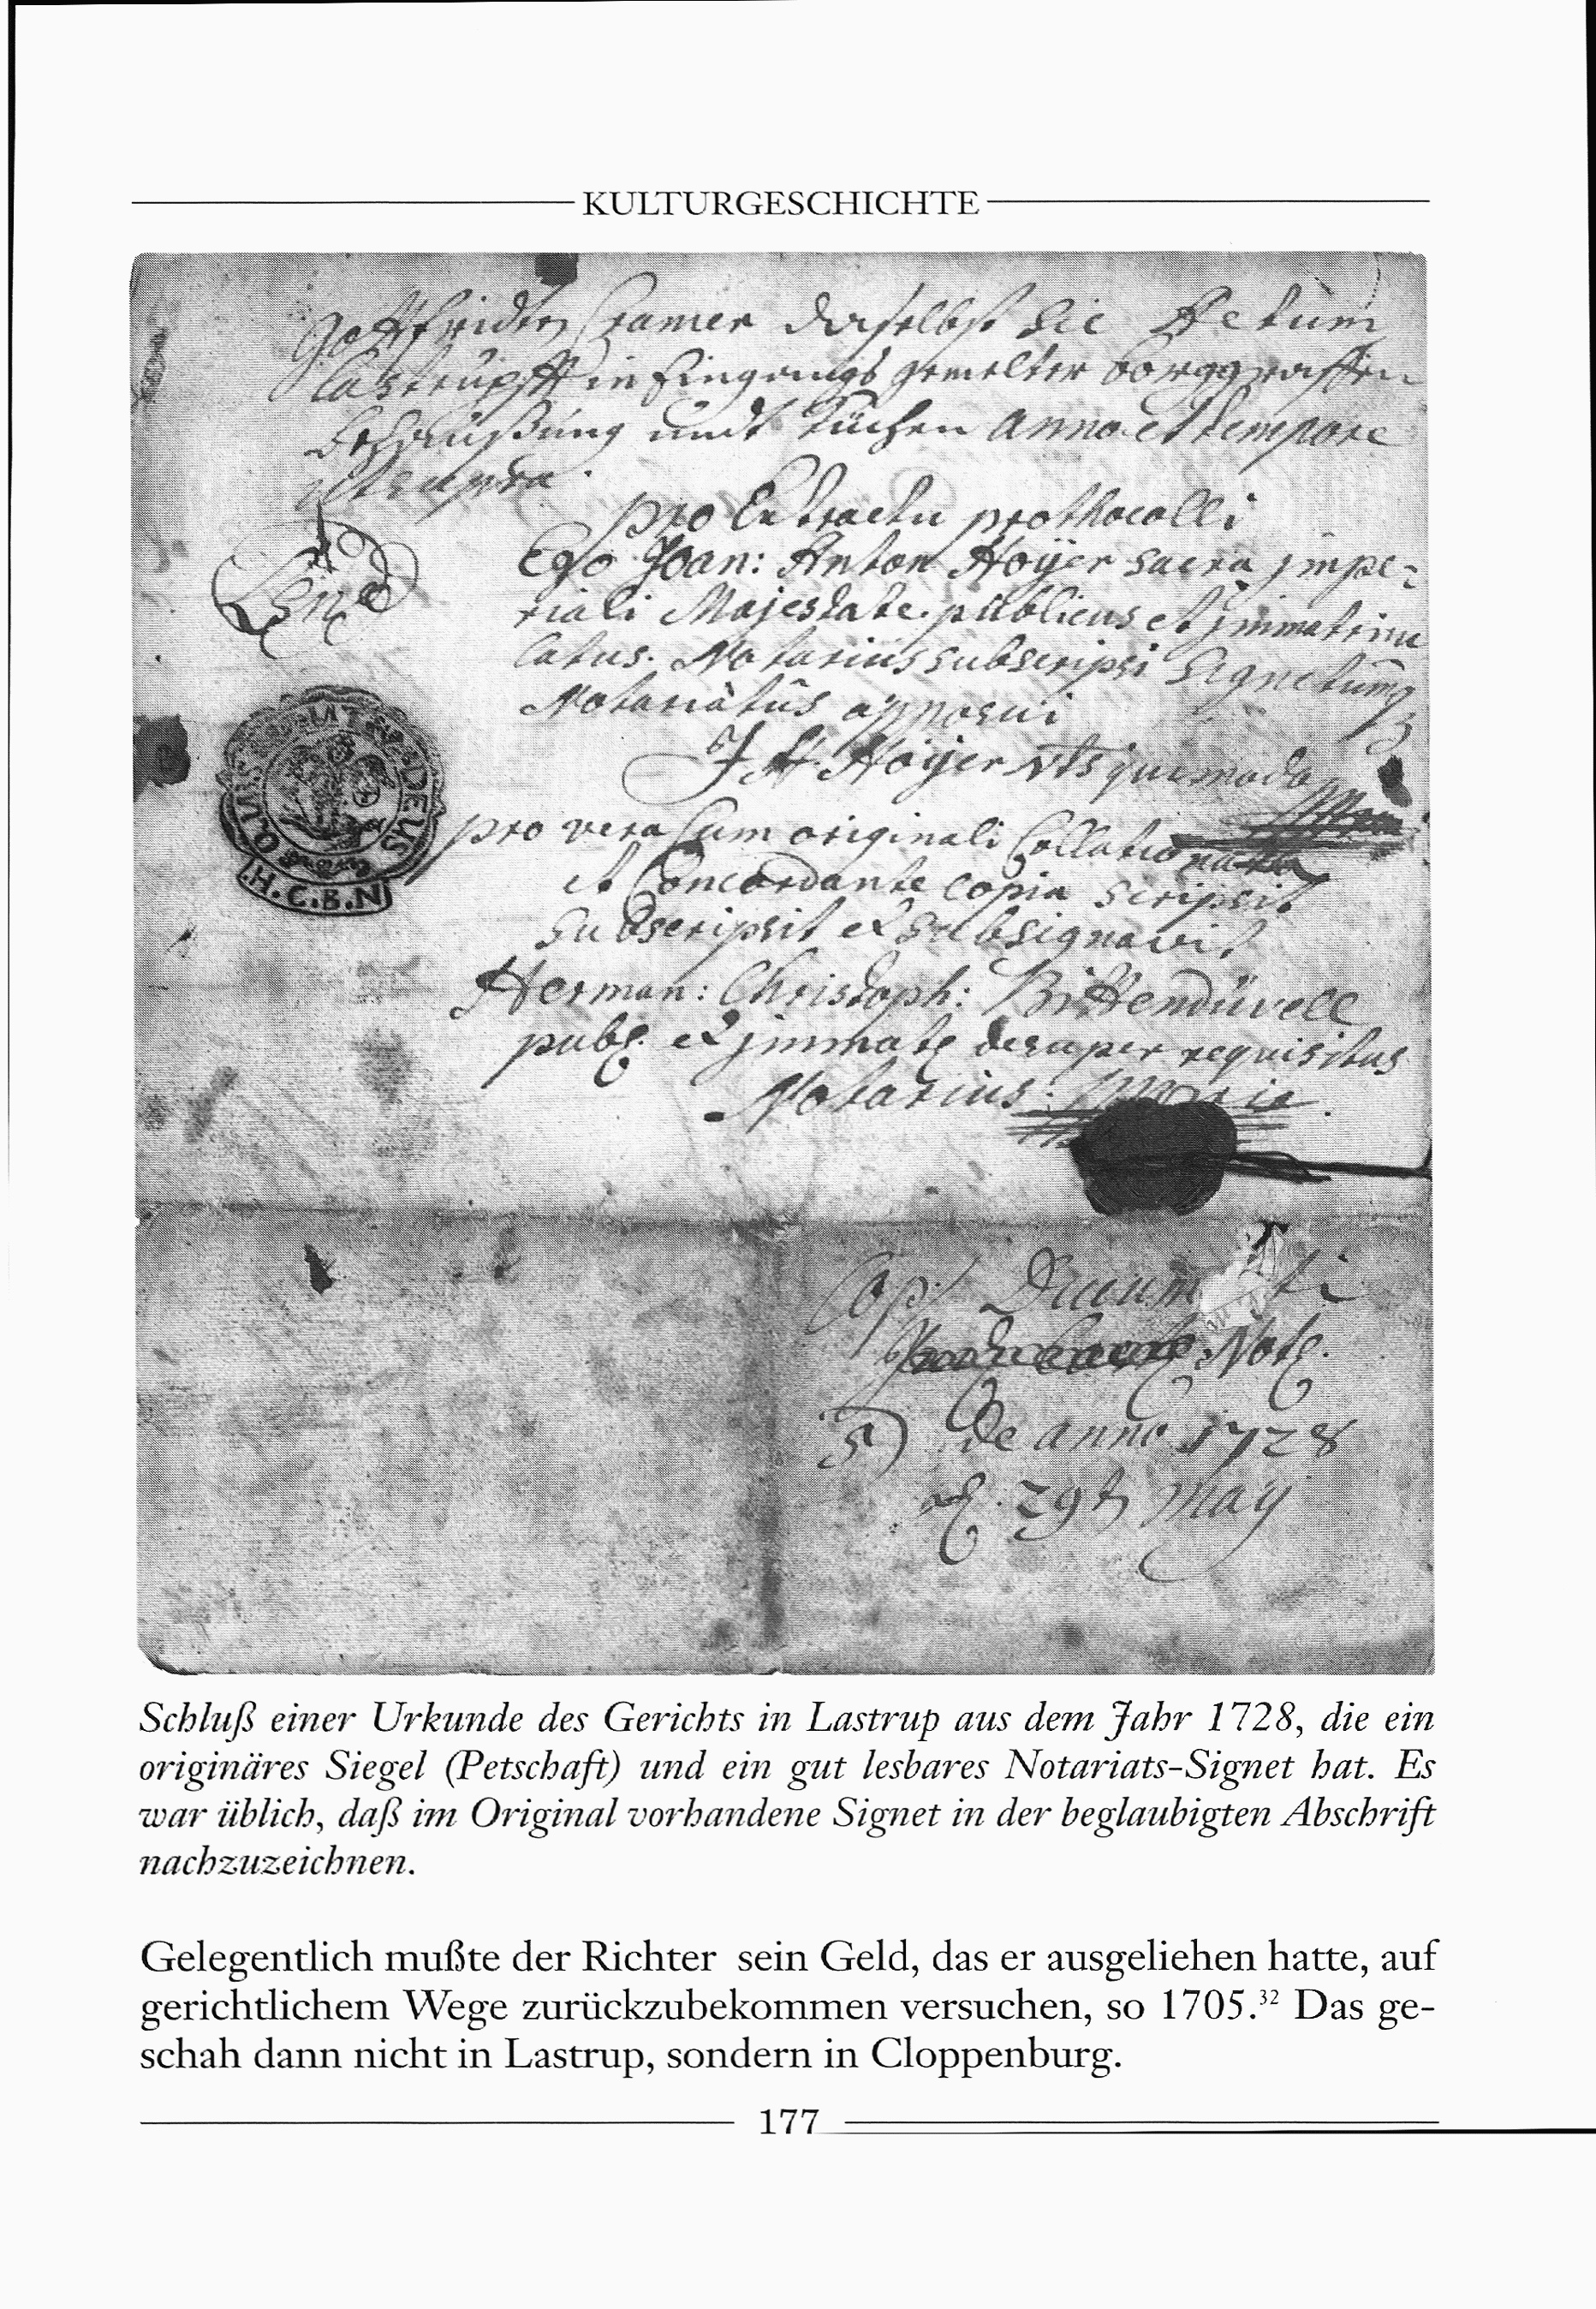 KULTURGESCHICHTE
Gottfridten Cramer daselbst Sic Actum
Lastrupff in Eingangs gemelter borggraffen
Behaußung undt Küchen anno et tempore
ut supra.
pro Extractu prothocolli
Ego Joan: Anton Hoÿer sacra jmpe-
riali Majestate publicus et jmmatricu
latus Notarius subscripsi Signetumq
Notariatûs apposui
J A Hoÿer Nts
pro vera Cum originali Collationata
et Concordante copia scripsit
Subscripsit et subsignavit
Herman: Christoph: Bittendüvell
publ et jmmat desuper requisitus
Notarius
DEUS
H.C.B.N
Not
5) de anno 1728
29t May
Schluß einer Urkunde des Gerichts in Lastrup aus dem Jahr 1728, die ein
originäres Siegel (Petschaft) und ein gut lesbares Notariats-Signet hat. Es
war üblich, daß im Original vorhandene Signet in der beglaubigten Abschrift
nachzuzeichnen.
Gelegentlich mußte der Richter sein Geld, das er ausgeliehen hatte, auf
gerichtlichem Wege zurückzubekommen versuchen, so 1705.³² Das ge-
schah dann nicht in Lastrup, sondern in Cloppenburg.
177